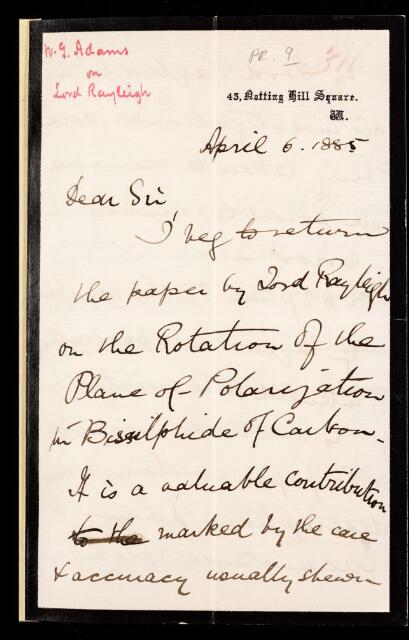 W. G. Adams
on
Lord Rayleigh
PR. 9
43, Notting Hill Square.
W.
April 6. 1885
Dear Sir
I beg to return
the paper by Lord Rayleigh
on the Rotation of the
Plane of Polarization
in Bisulphide of Carbon.
It is a valuable contribution
to the marked by the care
& accuracy usually shewn